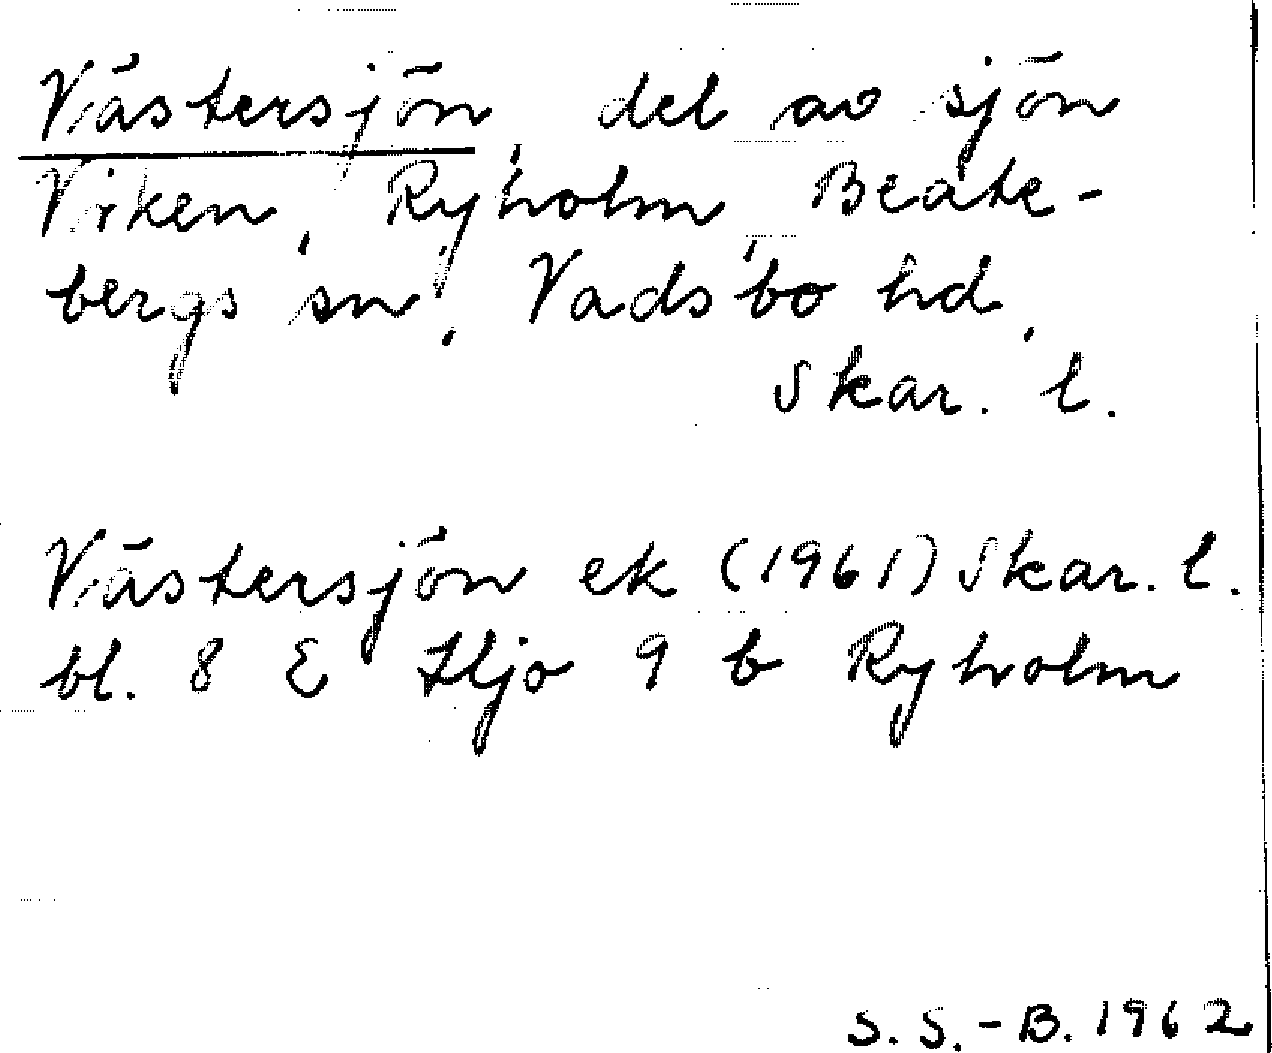 Västersjön, del av sjön
Virken, Ryholm, Beate-
bergs sn, Vadsbo hd,
Skar. l.
Västersjön ek (1961) Skar. l.
bl. 8 E Hjo 9 b Ryholm
S. S.-B. 1962